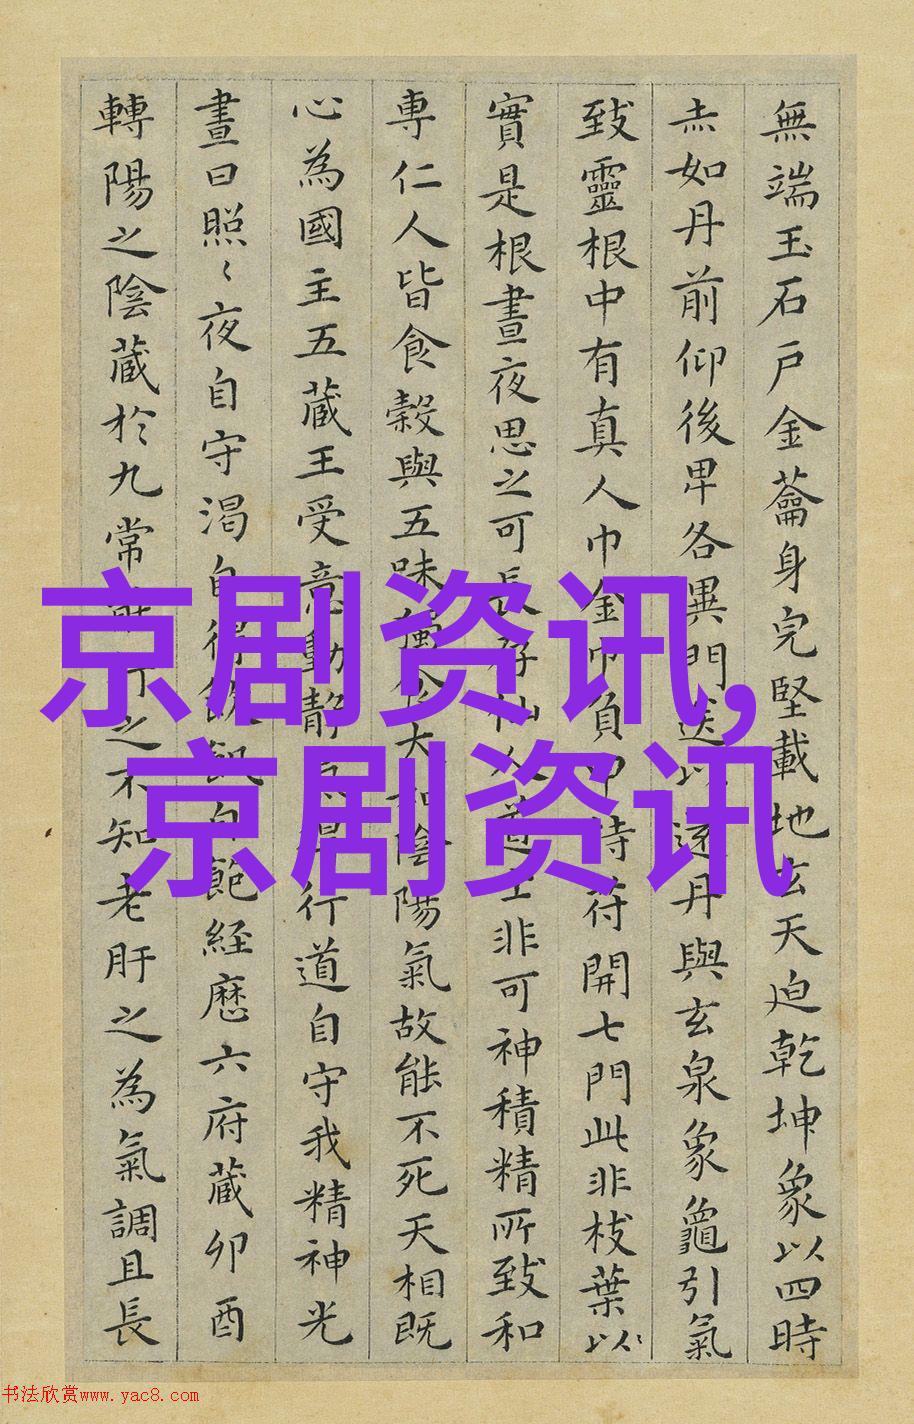 無端玉石戶金蘥身完堅載地玄天迫乾坤象以四時
赤如丹前仰後卑各異門送以逐丹與玄泉象龜引氣
致靈根中有真人巾金巾負甲持符開七門此非枝葉
實是根晝夜思之可長存仙人道士非可神積精所致和
專仁人皆食穀與五味獨食太和陰陽氣故能不死天相既
心為國主五藏王受意動靜氣得行道自守我精神光
晝日照〻夜自守渴自得飲飢自飽經歷六府藏卯酉
轉陽之陰藏於九常能行之不知老肝之為氣調且長
京剧资讯,
京剧资讯
书法欣赏www.yac8.com